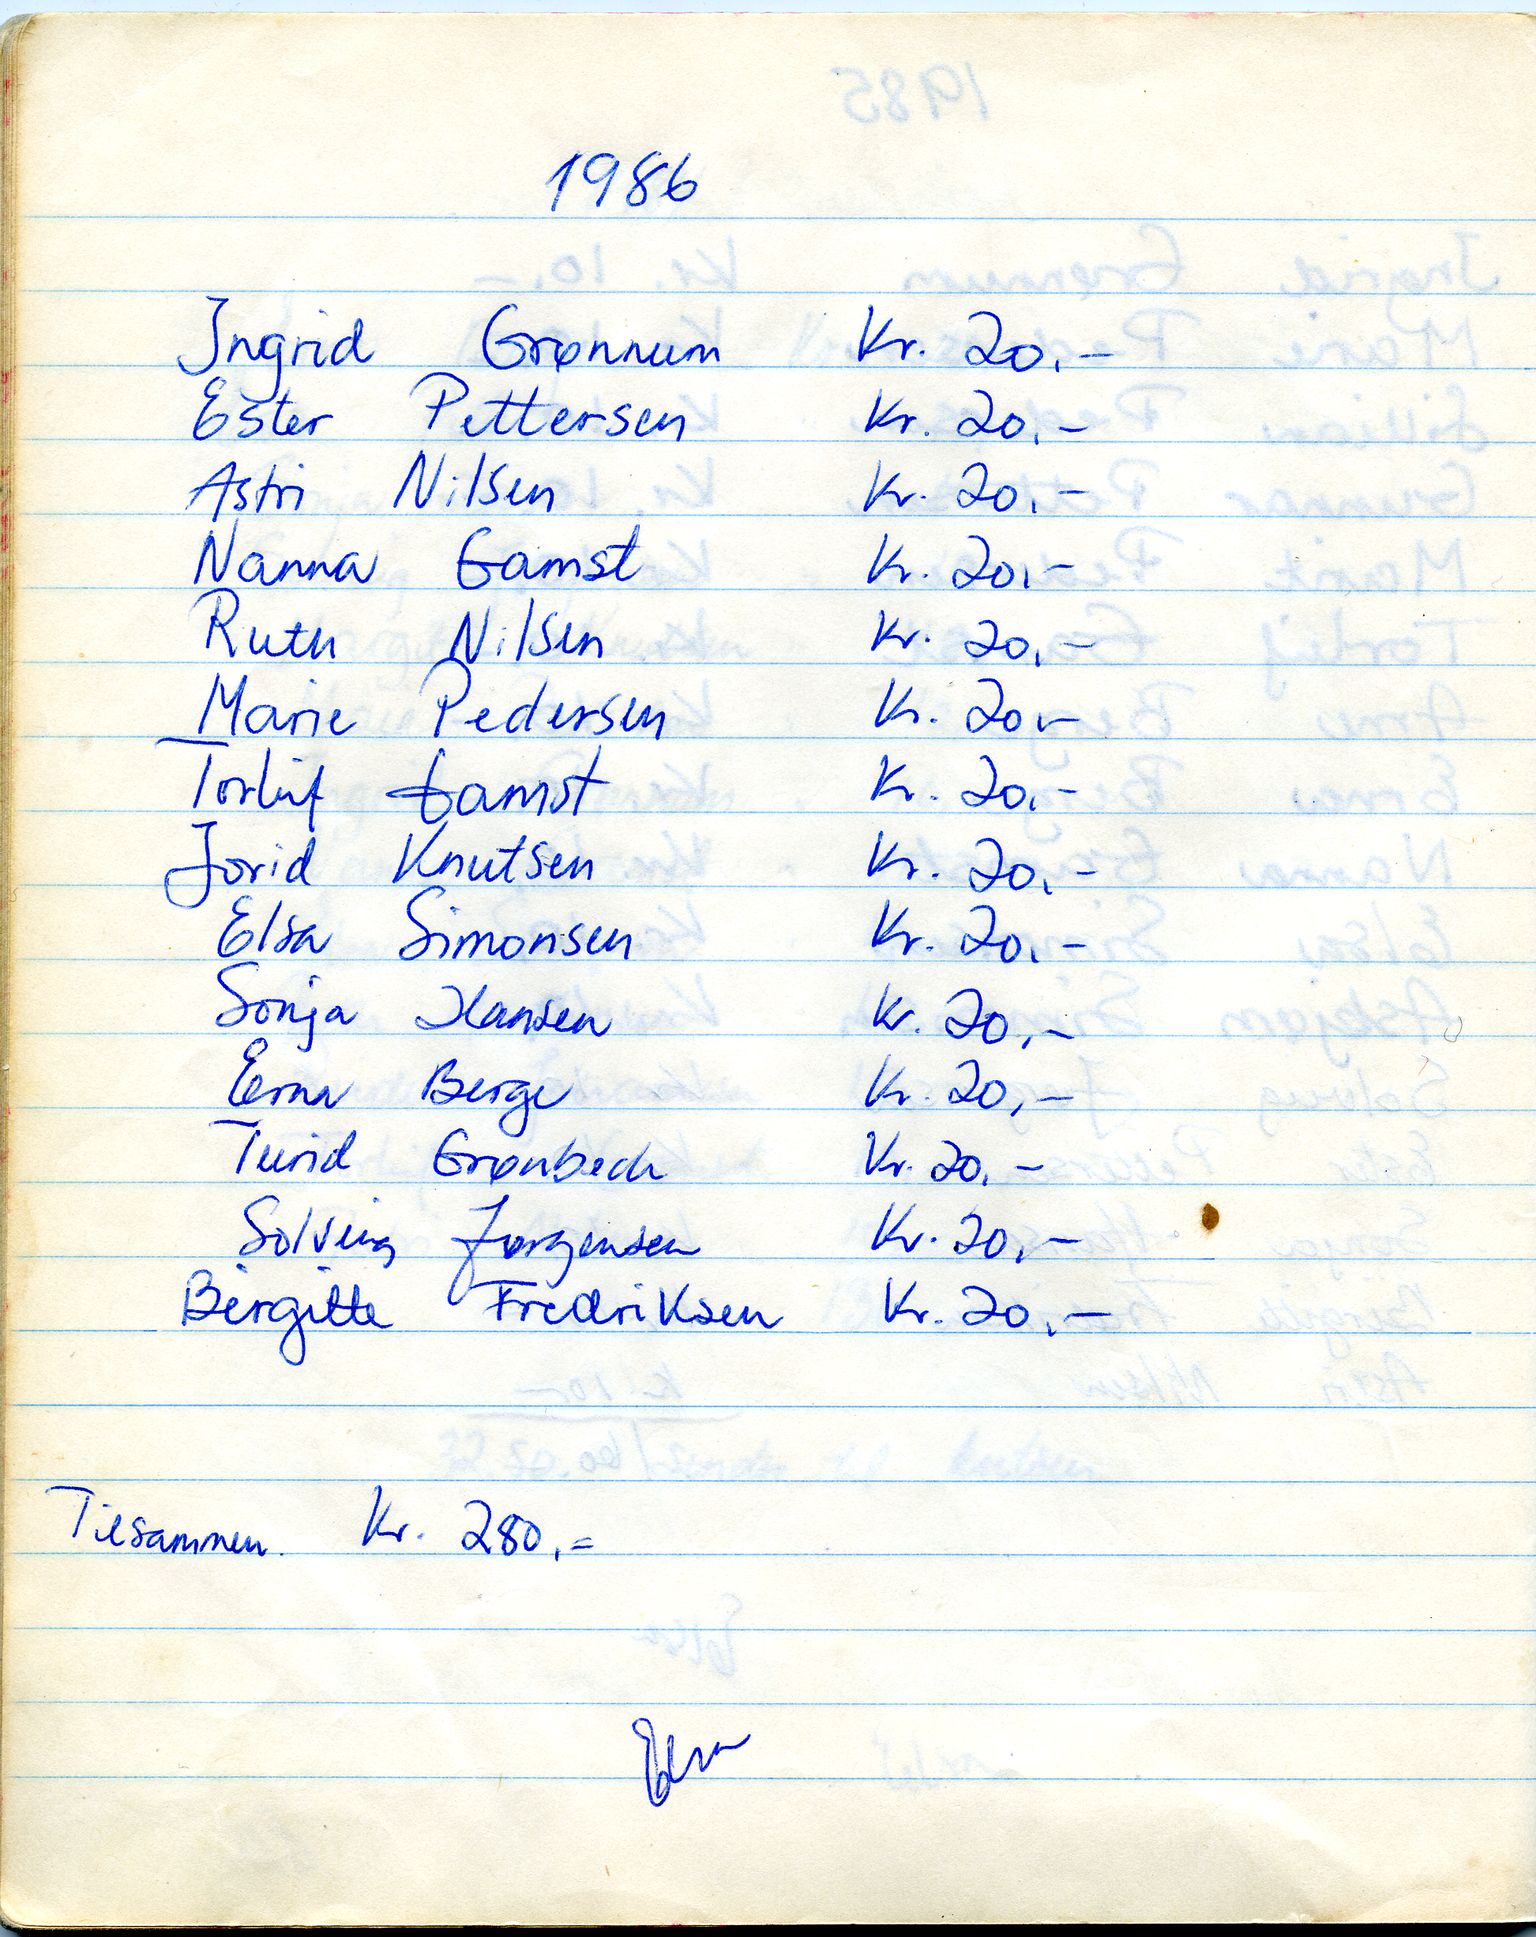 1986
Ingrid Grønnum Kr. 20,-
Ester Pettersen Kr. 20,-
Astri Nilsen Kr. 20,-
Nanna Gamst Kr. 20,-
Ruth Nilsen Kr. 20,-
Marie Pedersen Kr. 20,-
Torleif Gamst Kr. 20,-
Jorid Knutsen Kr. 20,-
Elsa Simonsen Kr. 20,-
Sonja Hansen Kr. 20,-
Erna Berge Kr. 20,-
Turid Grønbech Kr. 20,-
Solveig Jørgensen Kr. 20,-
Birgitte Fredriksen Kr. 20,-
Tilsammen. Kr. 280,=
Elsa